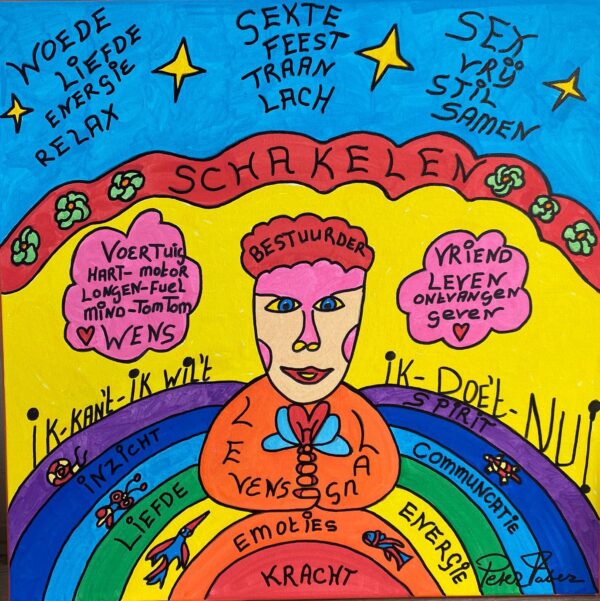 WOEDE
LIEFDE
ENERGIE
RELAX
SEXTE
FEEST
TRAAN
LACH
SEX
VRIJ
STIL
SAMEN
SCHAKELEN
BESTUURDER
VOERTUIG
HART-MOTOR
LONGEN-FUEL
MIND-TOMTOM
WENS
VRIEND
LEVEN
ONTVANGEN
GEVEN
iK-KAN't-iK WiL't
iK-DOE't-NU!
LEVENS
SPIRIT
INZICHT
COMMUNCATIE
LIEFDE
ENERGIE
EMOTIES
KRACHT
Peter